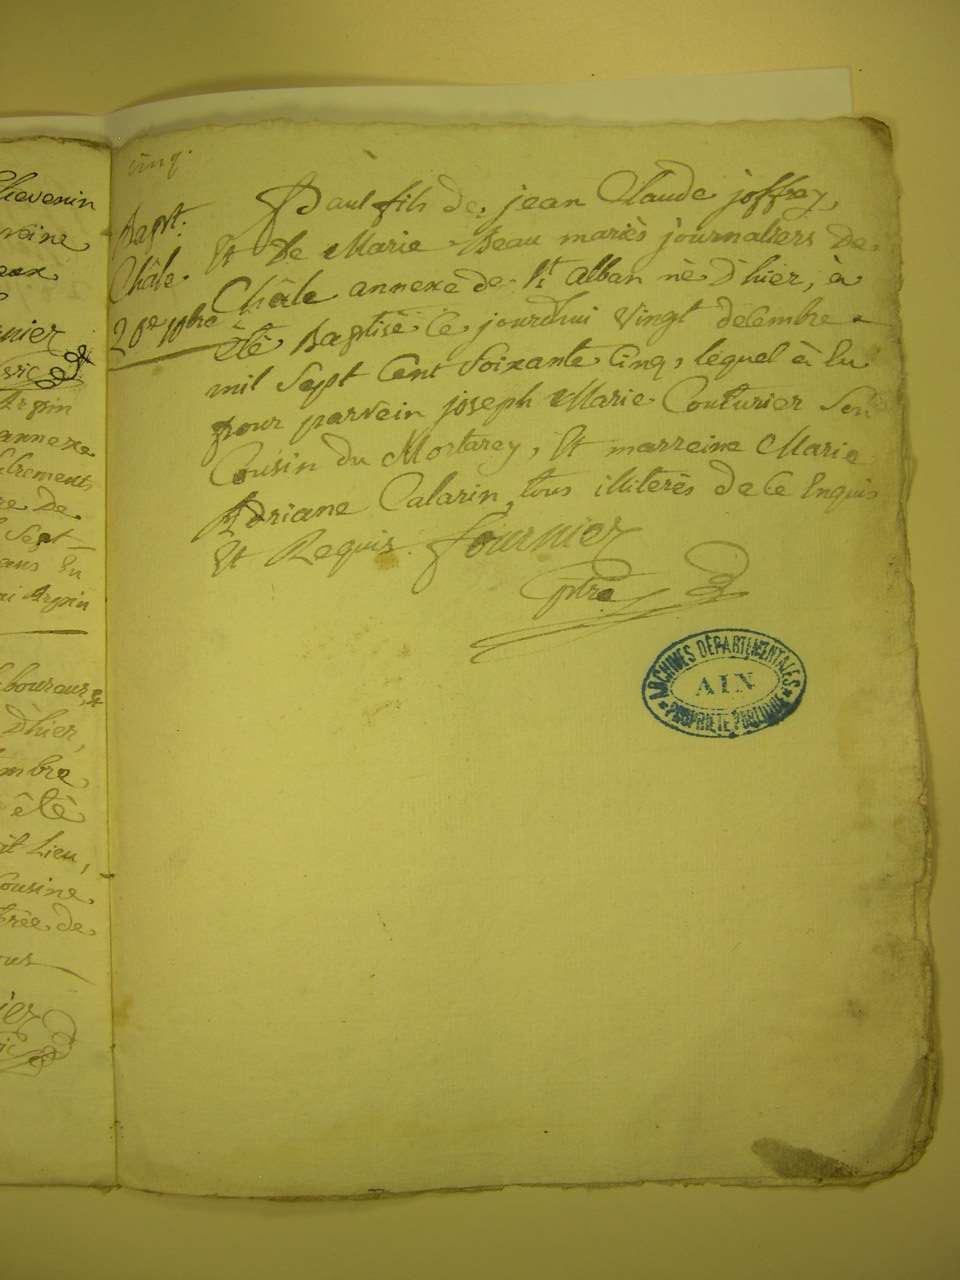 hevenin
nier
Arpin
annexe
re De
Sept
ans En
Arpin
boureur, et
D'hier,
embre
êtê
it Lieu,
Cousine
de
ous
cinq.
Bapt.
Châle.
20e 10bre
Paul fils de jean Claude joffrey
Et De Marie Beau mariés journaliers De
Châle annexe de St alban né D'hier, à
êtê Baptisé Ce jourdhui Vingt décembre
mil Sept Cent Soixante Cinq, lequel à Eu
pour parrein joseph Marie Couturier Son
Cousin du Mortarey, Et marreine Marie
Adriane Calarin, tous illiterés de Ce Enquis
Et Requis. fournier
ptre
ARCHIVES DÉPARTEMENTALES
AIN
PROPRIÉTÉ PUBLIQUE